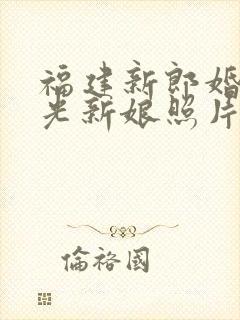 福建新郎婚
光新娘照片
倫裕國